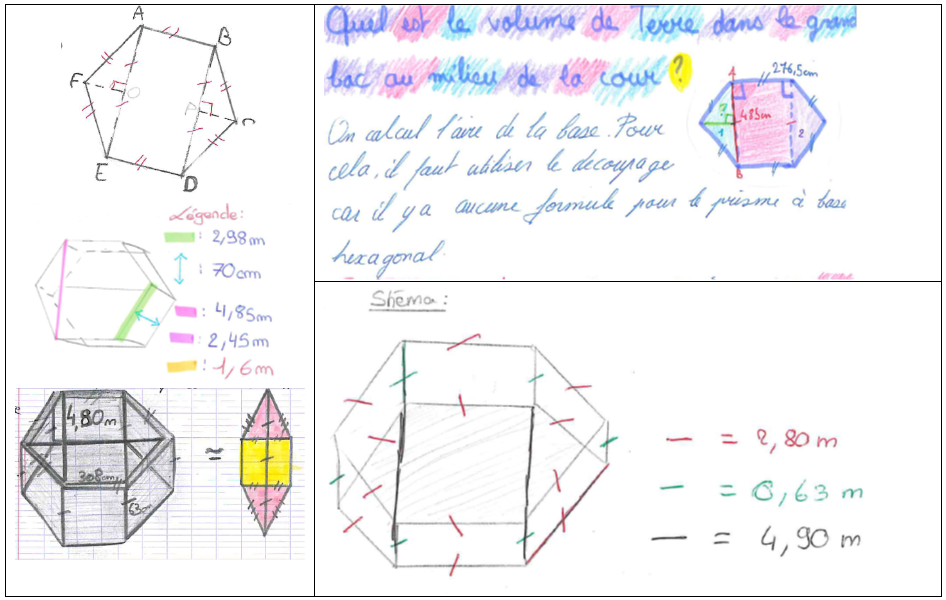 A
B
F
O
C
E
D
Légende:
: 2,98m
: 70cm
: 4,85m
: 2,45m
: 1,6m
4,80m
308cm
63cm
≈
Quel est le volume de Terre dans le grand
bac au milieu de la cour ?
276,5cm
A
?
485cm
1
2
B
On calcul l'aire de la base. Pour
cela, il faut utiliser le decoupage
car il y a aucune formule pour le prisme à base
hexagonal.
Shéma :
— = 2,80 m
— = 0,63 m
— = 4,90 m